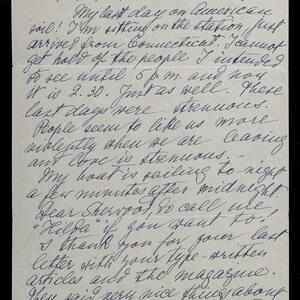 My last day on American
soil! I'm sitting on the station just
arrived from Connecticut. I cannot
get hold of the people I intended
to see until 5 p.m. and now
it is 2.30. Just as well. These
last days were strenuous.
People seem to like us more
violently when we are leaving
and love is strenuous. -
My boat is sailing to-night
a few minutes after midnight.
Dear Sherwood, do call me
"Hilda" if you want to!
I thank you for your last
letter with your type-written
articles and the magazine.
You said very nice things about